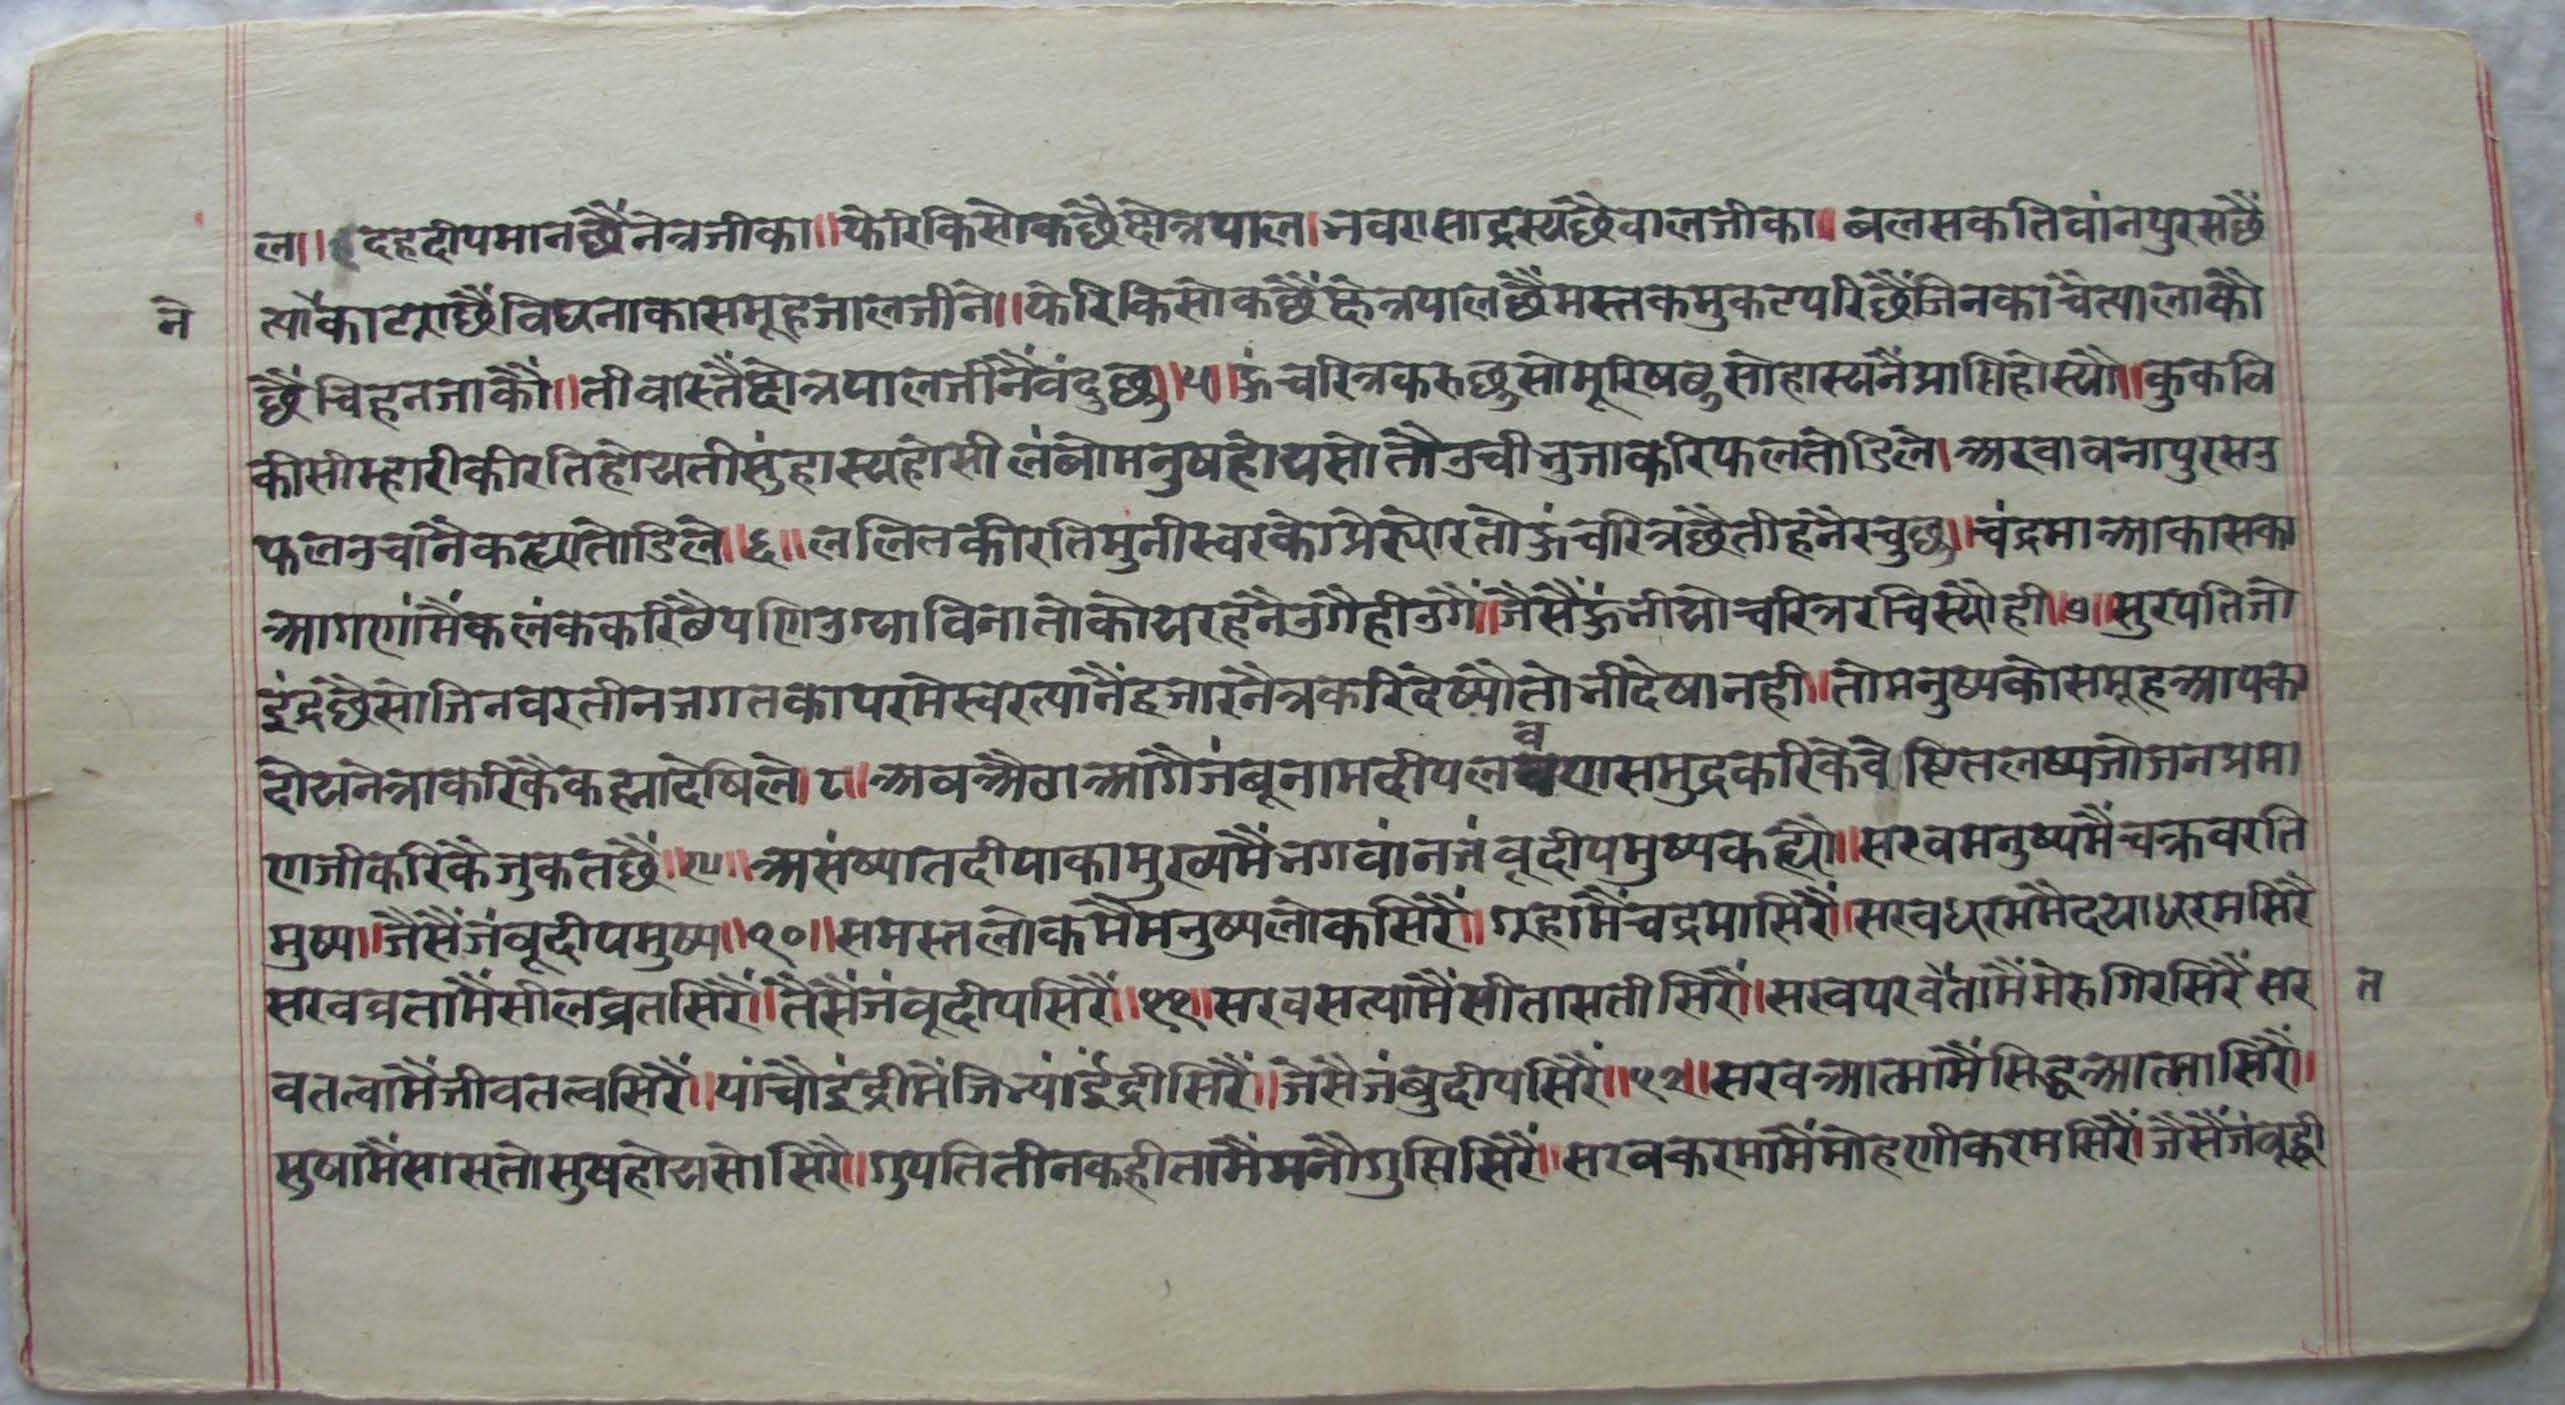 ल।। दहदीपमानछैंनेत्रजीका।। फेरिकिसोकछैक्षेत्रपाल। भवरासाद्रस्यछैवालजीका। बलसकतिवांनपुरसछैं
ने
त्यांकाटग्राछैविघनाकासमूहजालजीने।। फेरिकिसोकछैंक्षेत्रपालछैंमस्तकमुकटपरिछैंजिनकाचैत्यालाकौ
छैंचिहनजाकौं।। तीवास्तैंक्षेत्रपालजीनैंवंदुछु।। ५।। ऊंचरित्रकरुछुसोमूरिषछुसोहास्यनैंप्राप्तिहोस्यौ।। कुकवि
कीसीम्हारीकीरतिहोयतीसुंहास्यहोसीलंबोमनुषहोयसोतौउचीभुजाकरिफलतोडिले। अरवावनापुरसउ
फलउचांनैकह्यातोडिले।। ६।। ललितकीरतिमुनीस्वरकोप्रेरयोरतोऊंचरित्रछैतीहनैरचुछु।। चंद्रमाआकासका
आगणांमैंकलंककरिछैपणिउग्याविनातोकोयरहेनैउगैहीउगैं।। जैसैंऊंनीयोचरित्ररचिस्यौही।। ७।। सुरपतिजो
इंद्रछैसोजिनवरतीनजगतकापरमेस्वरत्यानैंहजारनैत्रकरिदेष्यौतोनीदेषानही।। तोमनुष्यकोसमूहआपका
दोयनेत्राकरिकैकह्मादेषिले। ८।। अवअैठाआगैजंबूनामदीपलवणसमुद्रकरिकेवेष्टितलष्यजोजनप्रमा
णजीकरिकैजुकतछैं।। ९।। असंष्यातदीपाकामुख्यमैंभगवांनजंवूदीपमुष्यकह्यौ।। सरवमनुष्यमैंचक्रवरति
मुष्य।। जैसैंजंवूदीपमुष्य।। १०।। समस्तलोकमैंमनुष्यलोकसिरैं।। ग्रहामैंचद्रमासिरैं।। सरवधरममैदयाधरमसिरै
सरवव्रतामैंसीलव्रतसिरैं।। तैसैंजंवूदीपसिरैं।। ११।। सरवसत्यामैंसीतासतीसिरैं।। सरवपरवतामैंमेरुगिरसिरैंसर
त
वतत्वामैंजीवतत्वसिरैं।। पांचौइंद्रीमैंजिभ्यांईंद्रीसिरैं।। जैसैजंबुदीपसिरैं।। १२।। सरवआत्मामैंसिद्धआत्मासिरैं।।
सुषामैंसासतोसुषहोयसोसिरै।। गुपतितीनकहीतामैंमनौगुप्तिसिरैं।। सरवकरमामैंमोहणीकरमसिरैं। जैसैंजंवूद्वी